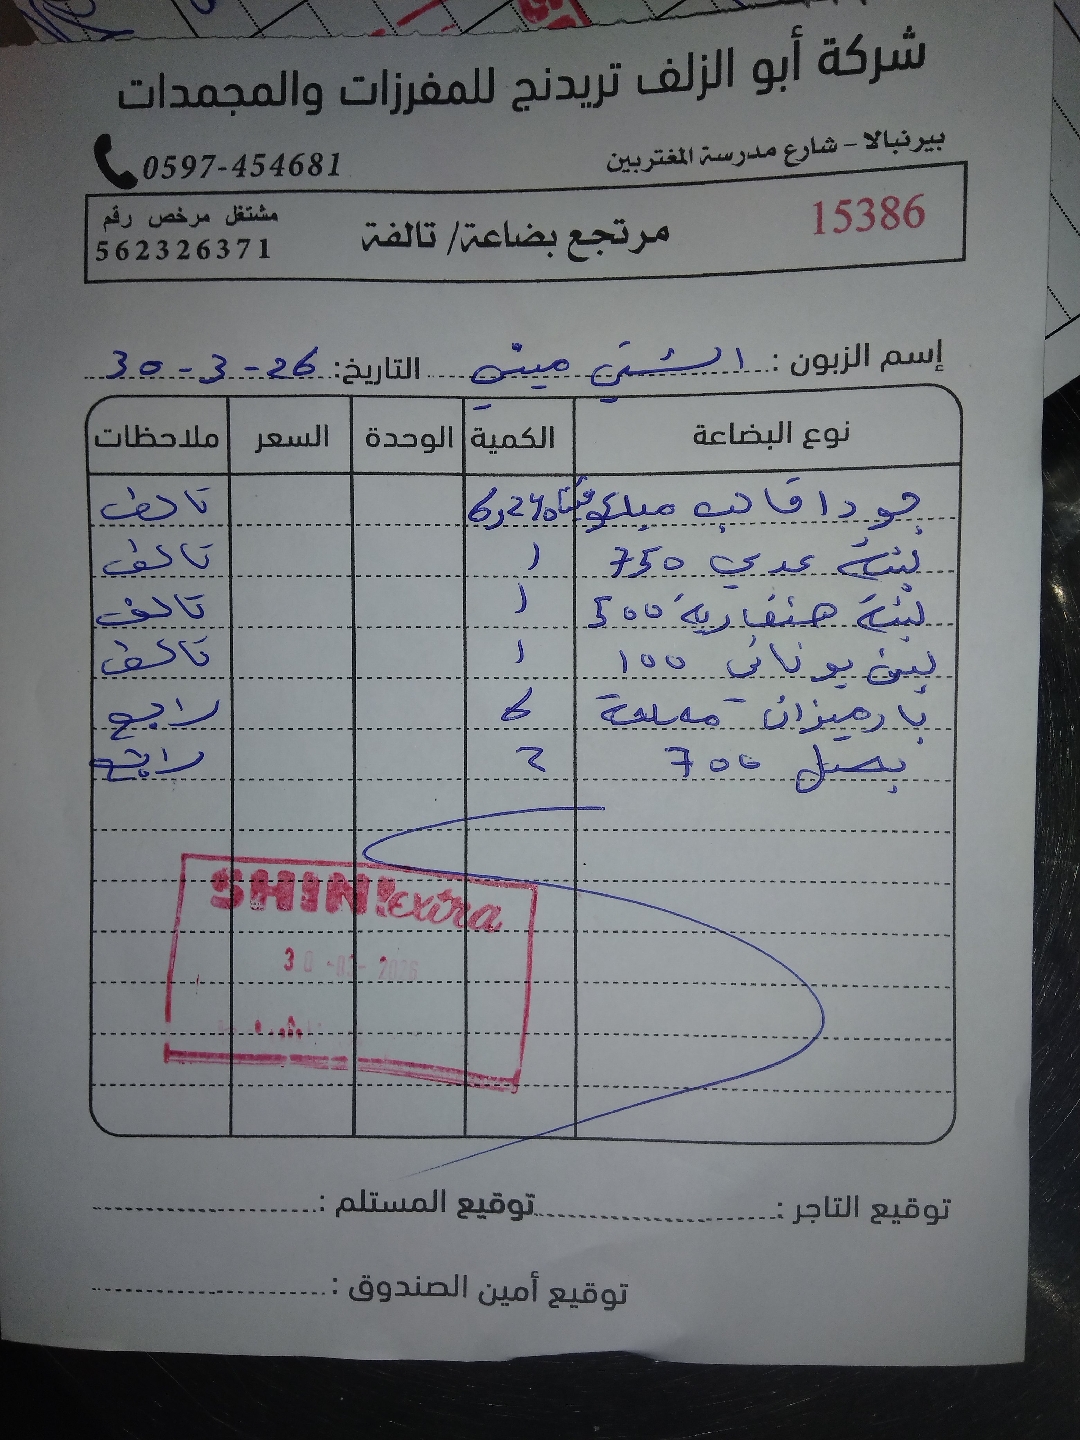 شركة أبو الزلف تريدنج للمفرزات والمجمدات
بيرنبالا - شارع مدرسة المغتربين
0597-454681
15386
مرتجع بضاعة/ تالفة
مشتغل مرخص رقم
562326371
إسم الزبون : الشني ميني التاريخ: 30-3-26
نوع البضاعة الكمية الوحدة السعر ملاحظات
جودا قالب تالف
لبنة 750 1 تالف
لبنة هنغارية 500 1 تالف
لبن يوناني 100 1 تالف
بارميزان 6 راجع
بصل 700 2 راجع
SHINI extra
30-03-2026
توقيع التاجر : توقيع المستلم :
توقيع أمين الصندوق :